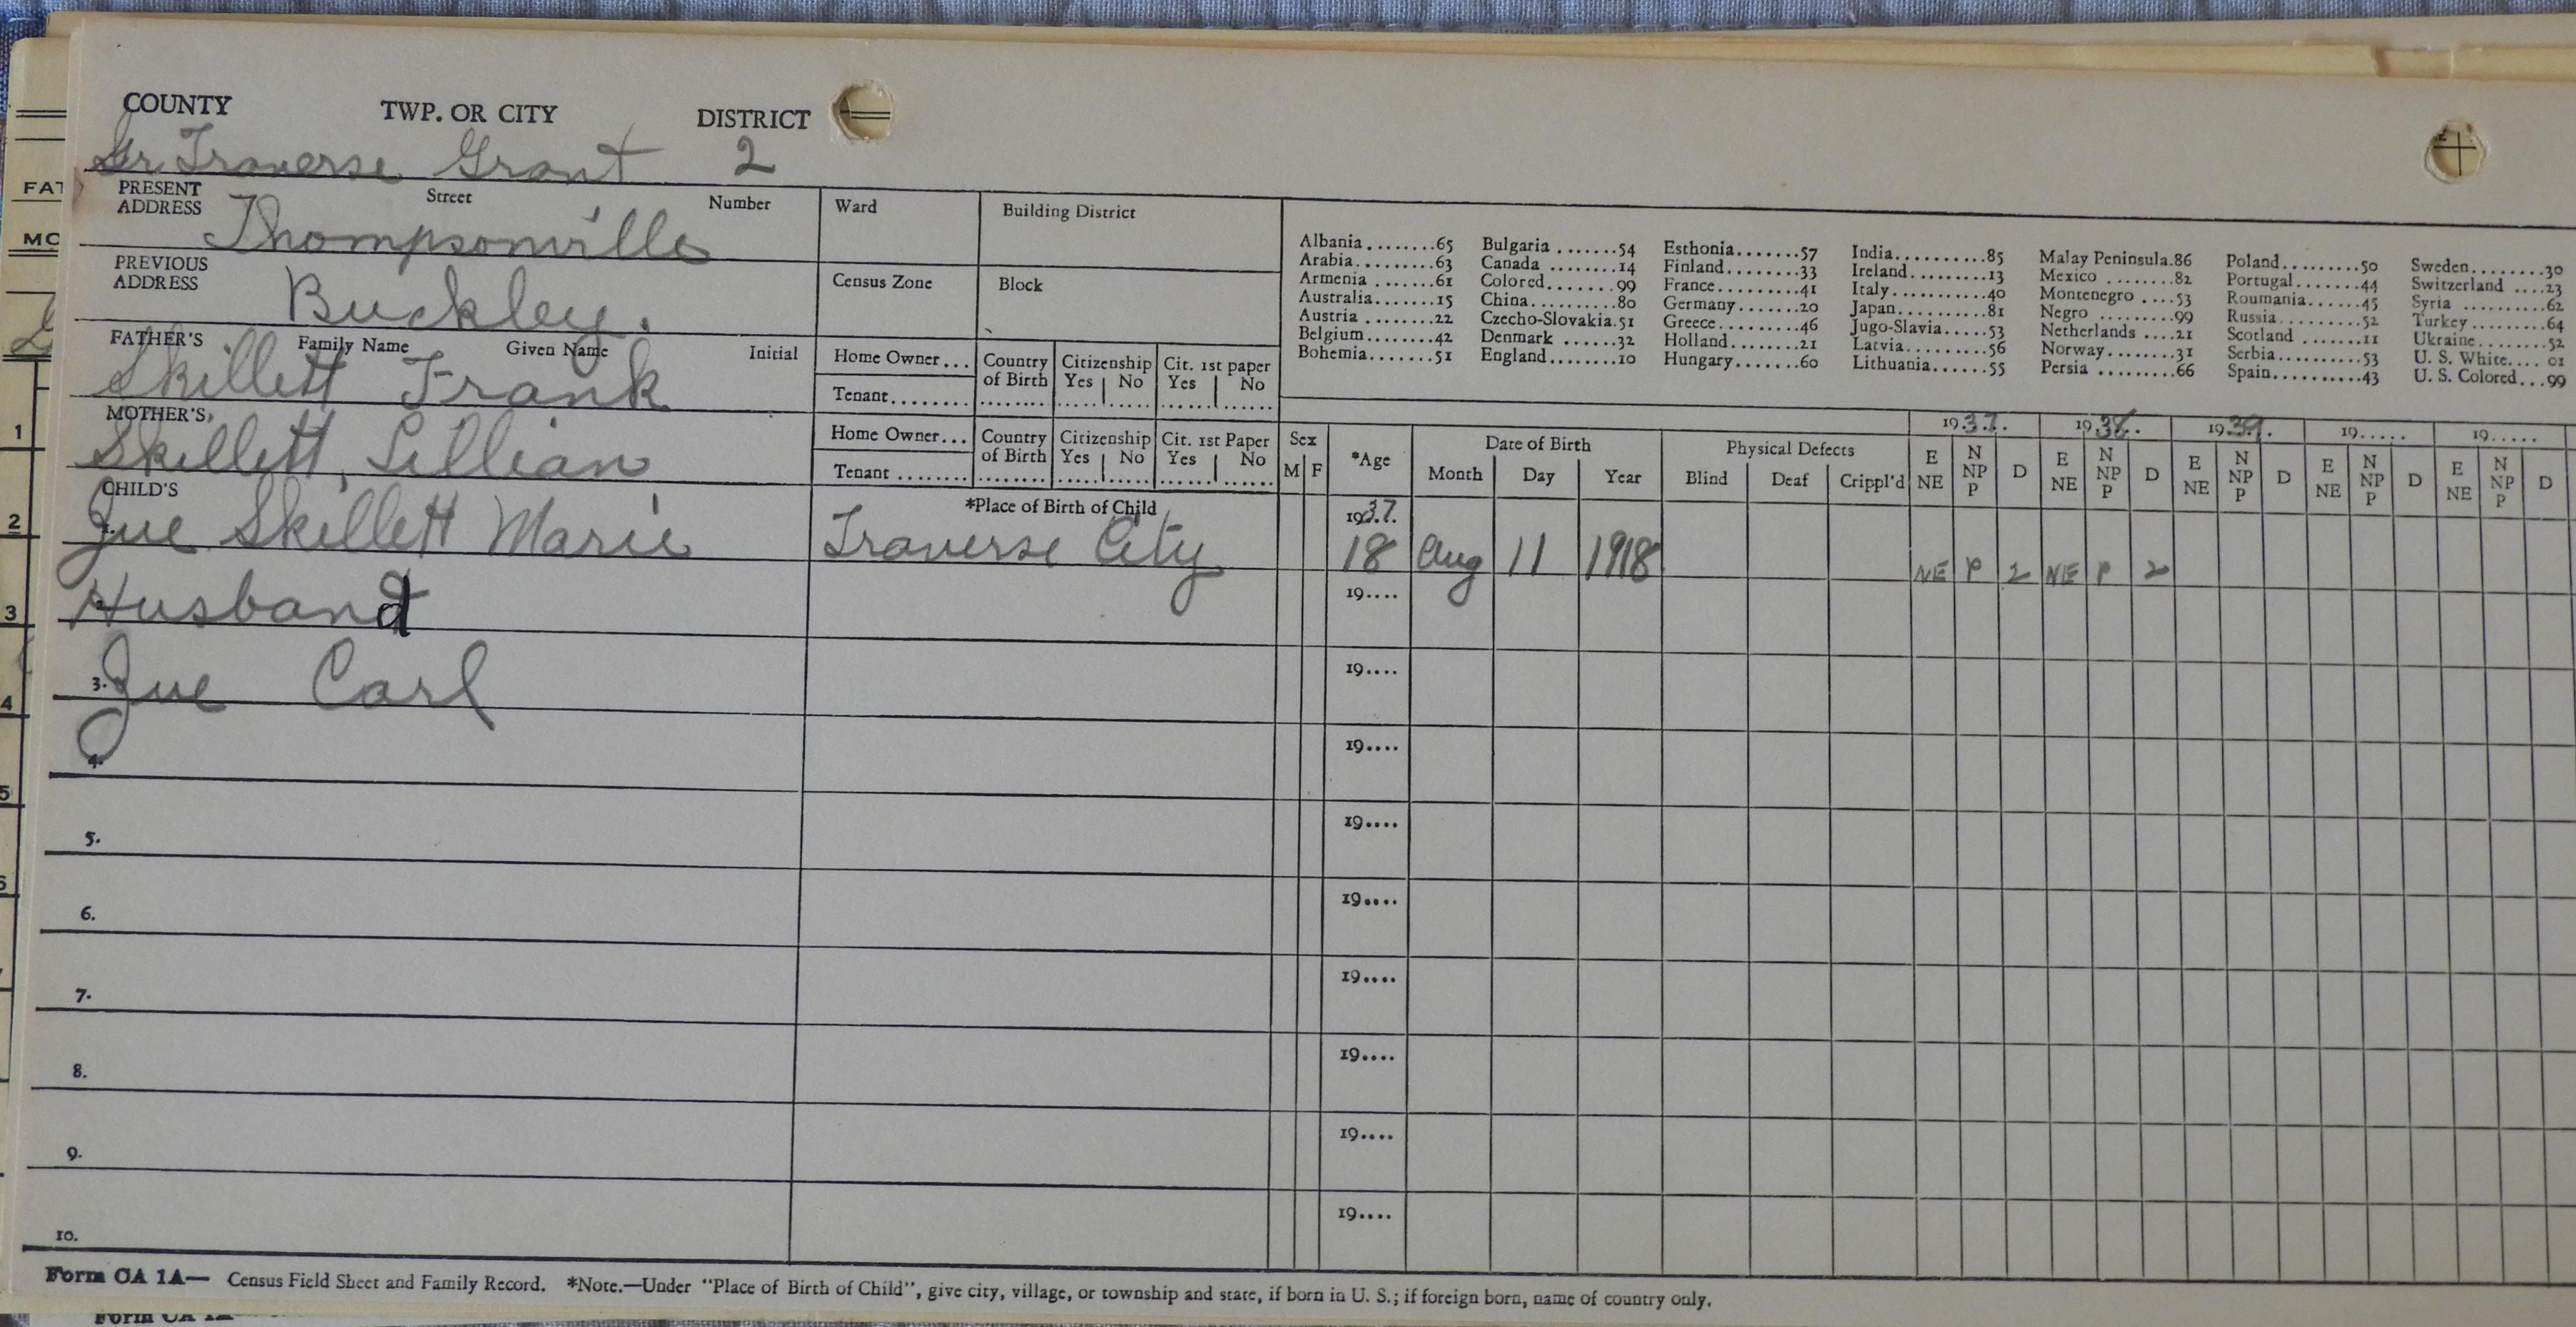 COUNTY TWP. OR CITY DISTRICT
Gr Traverse Grant 2
PRESENT ADDRESS Street Number
Thompsonville
Ward Building District
PREVIOUS ADDRESS
Buckley.
Census Zone Block
FATHER'S Family Name Given Name Initial
Skillett Frank
Home Owner... Country of Birth Citizenship Yes No Cit. 1st paper Yes No
Tenant........
MOTHER'S
Skillett, Lillian
Home Owner... Country of Birth Citizenship Yes No Cit. 1st Paper Yes No
Tenant ........
Albania........65 Bulgaria ......54 Esthonia.......57 India..........85 Malay Peninsula.86 Poland..........50 Sweden.........30
Arabia.........63 Canada ........14 Finland........33 Ireland.........13 Mexico ........82 Portugal........44 Switzerland ....23
Armenia .......61 Colored........99 France.........41 Italy..........40 Montenegro ....53 Roumania.......45 Syria .........62
Australia......15 China..........80 Germany........20 Japan..........81 Negro .........99 Russia..........52 Turkey .........64
Austria .......22 Czecho-Slovakia.51 Greece.........46 Jugo-Slavia.....53 Netherlands ....21 Scotland .......11 Ukraine.........52
Belgium .......42 Denmark ......32 Holland........21 Latvia..........56 Norway.........31 Serbia..........53 U. S. White.... 01
Bohemia.......51 England........10 Hungary.......60 Lithuania......55 Persia .........66 Spain..........43 U. S. Colored...99
Sex M F *Age Date of Birth Month Day Year Physical Defects Blind Deaf Crippl'd
1937. 1938. 1939. 19..... 19.....
E NE N NP P D E NE N NP P D E NE N NP P D E NE N NP P D E NE N NP P D
CHILD'S *Place of Birth of Child
1. Zue Skillett Marie Traverse City 1937. 18 Aug 11 1918 NE P 2 NE P 2
2. Husband 19....
3. Zue Carl 19....
4. 19....
5. 19....
6. 19....
7. 19....
8. 19....
9. 19....
10. 19....
Form CA 1A— Census Field Sheet and Family Record. *Note.—Under "Place of Birth of Child", give city, village, or township and state, if born in U. S.; if foreign born, name of country only.
FAT
MO
1
2
3
4
5
6